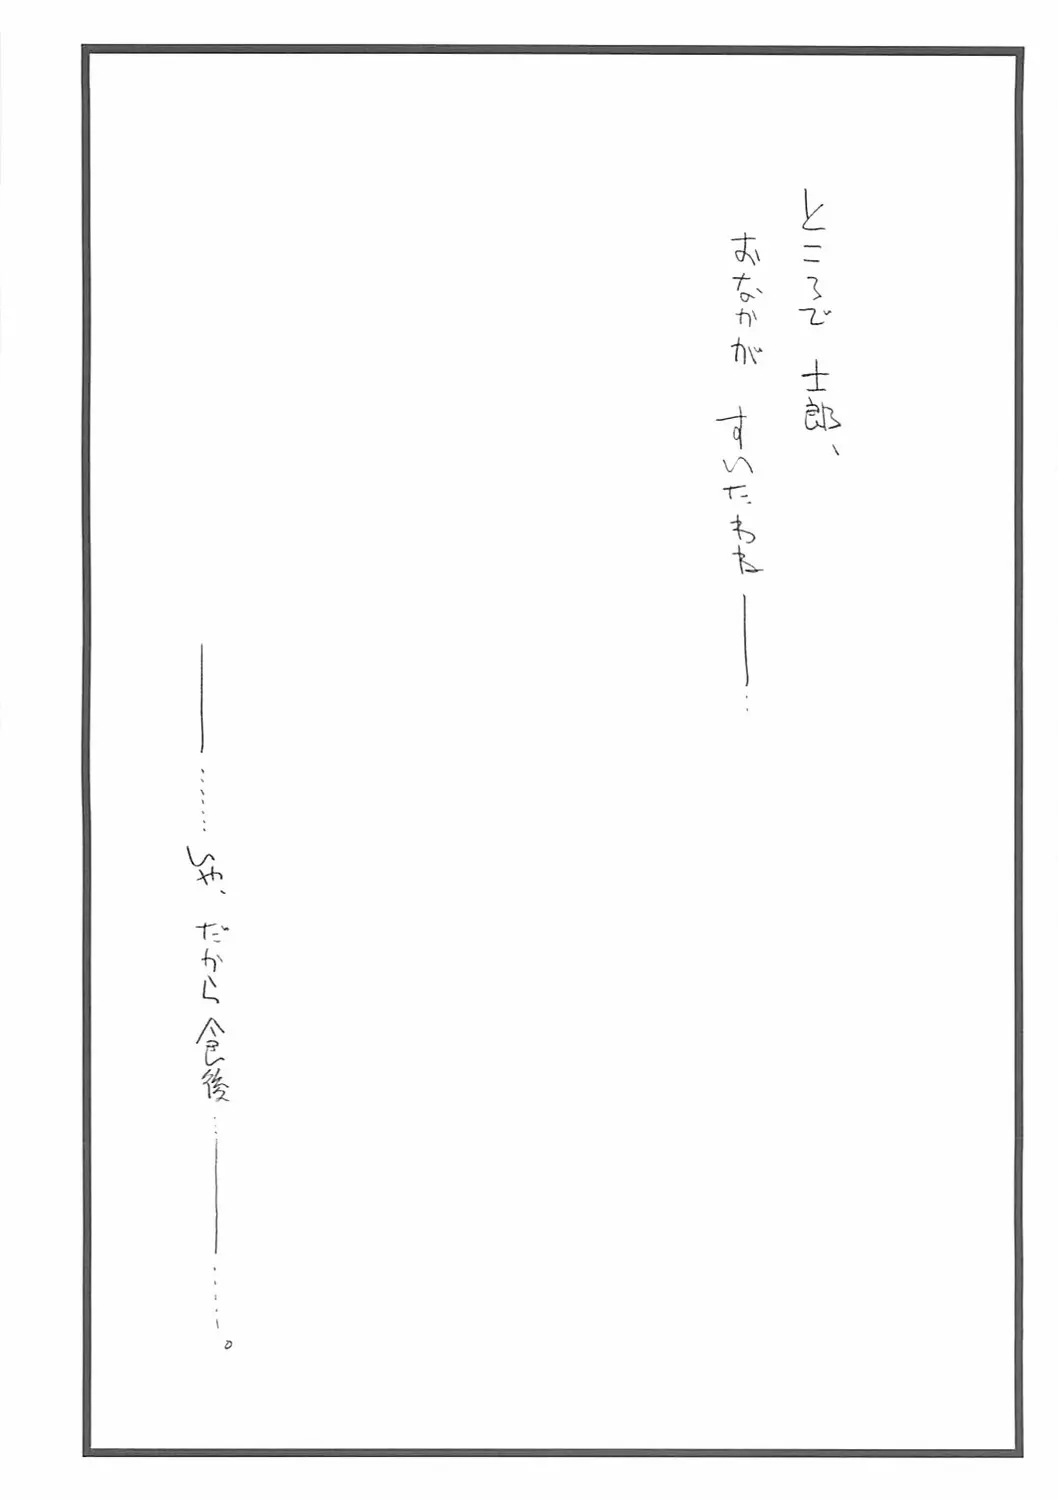 ところで 士郎、
おなかが すいたわね──…
──………いや、だから食後…──……。